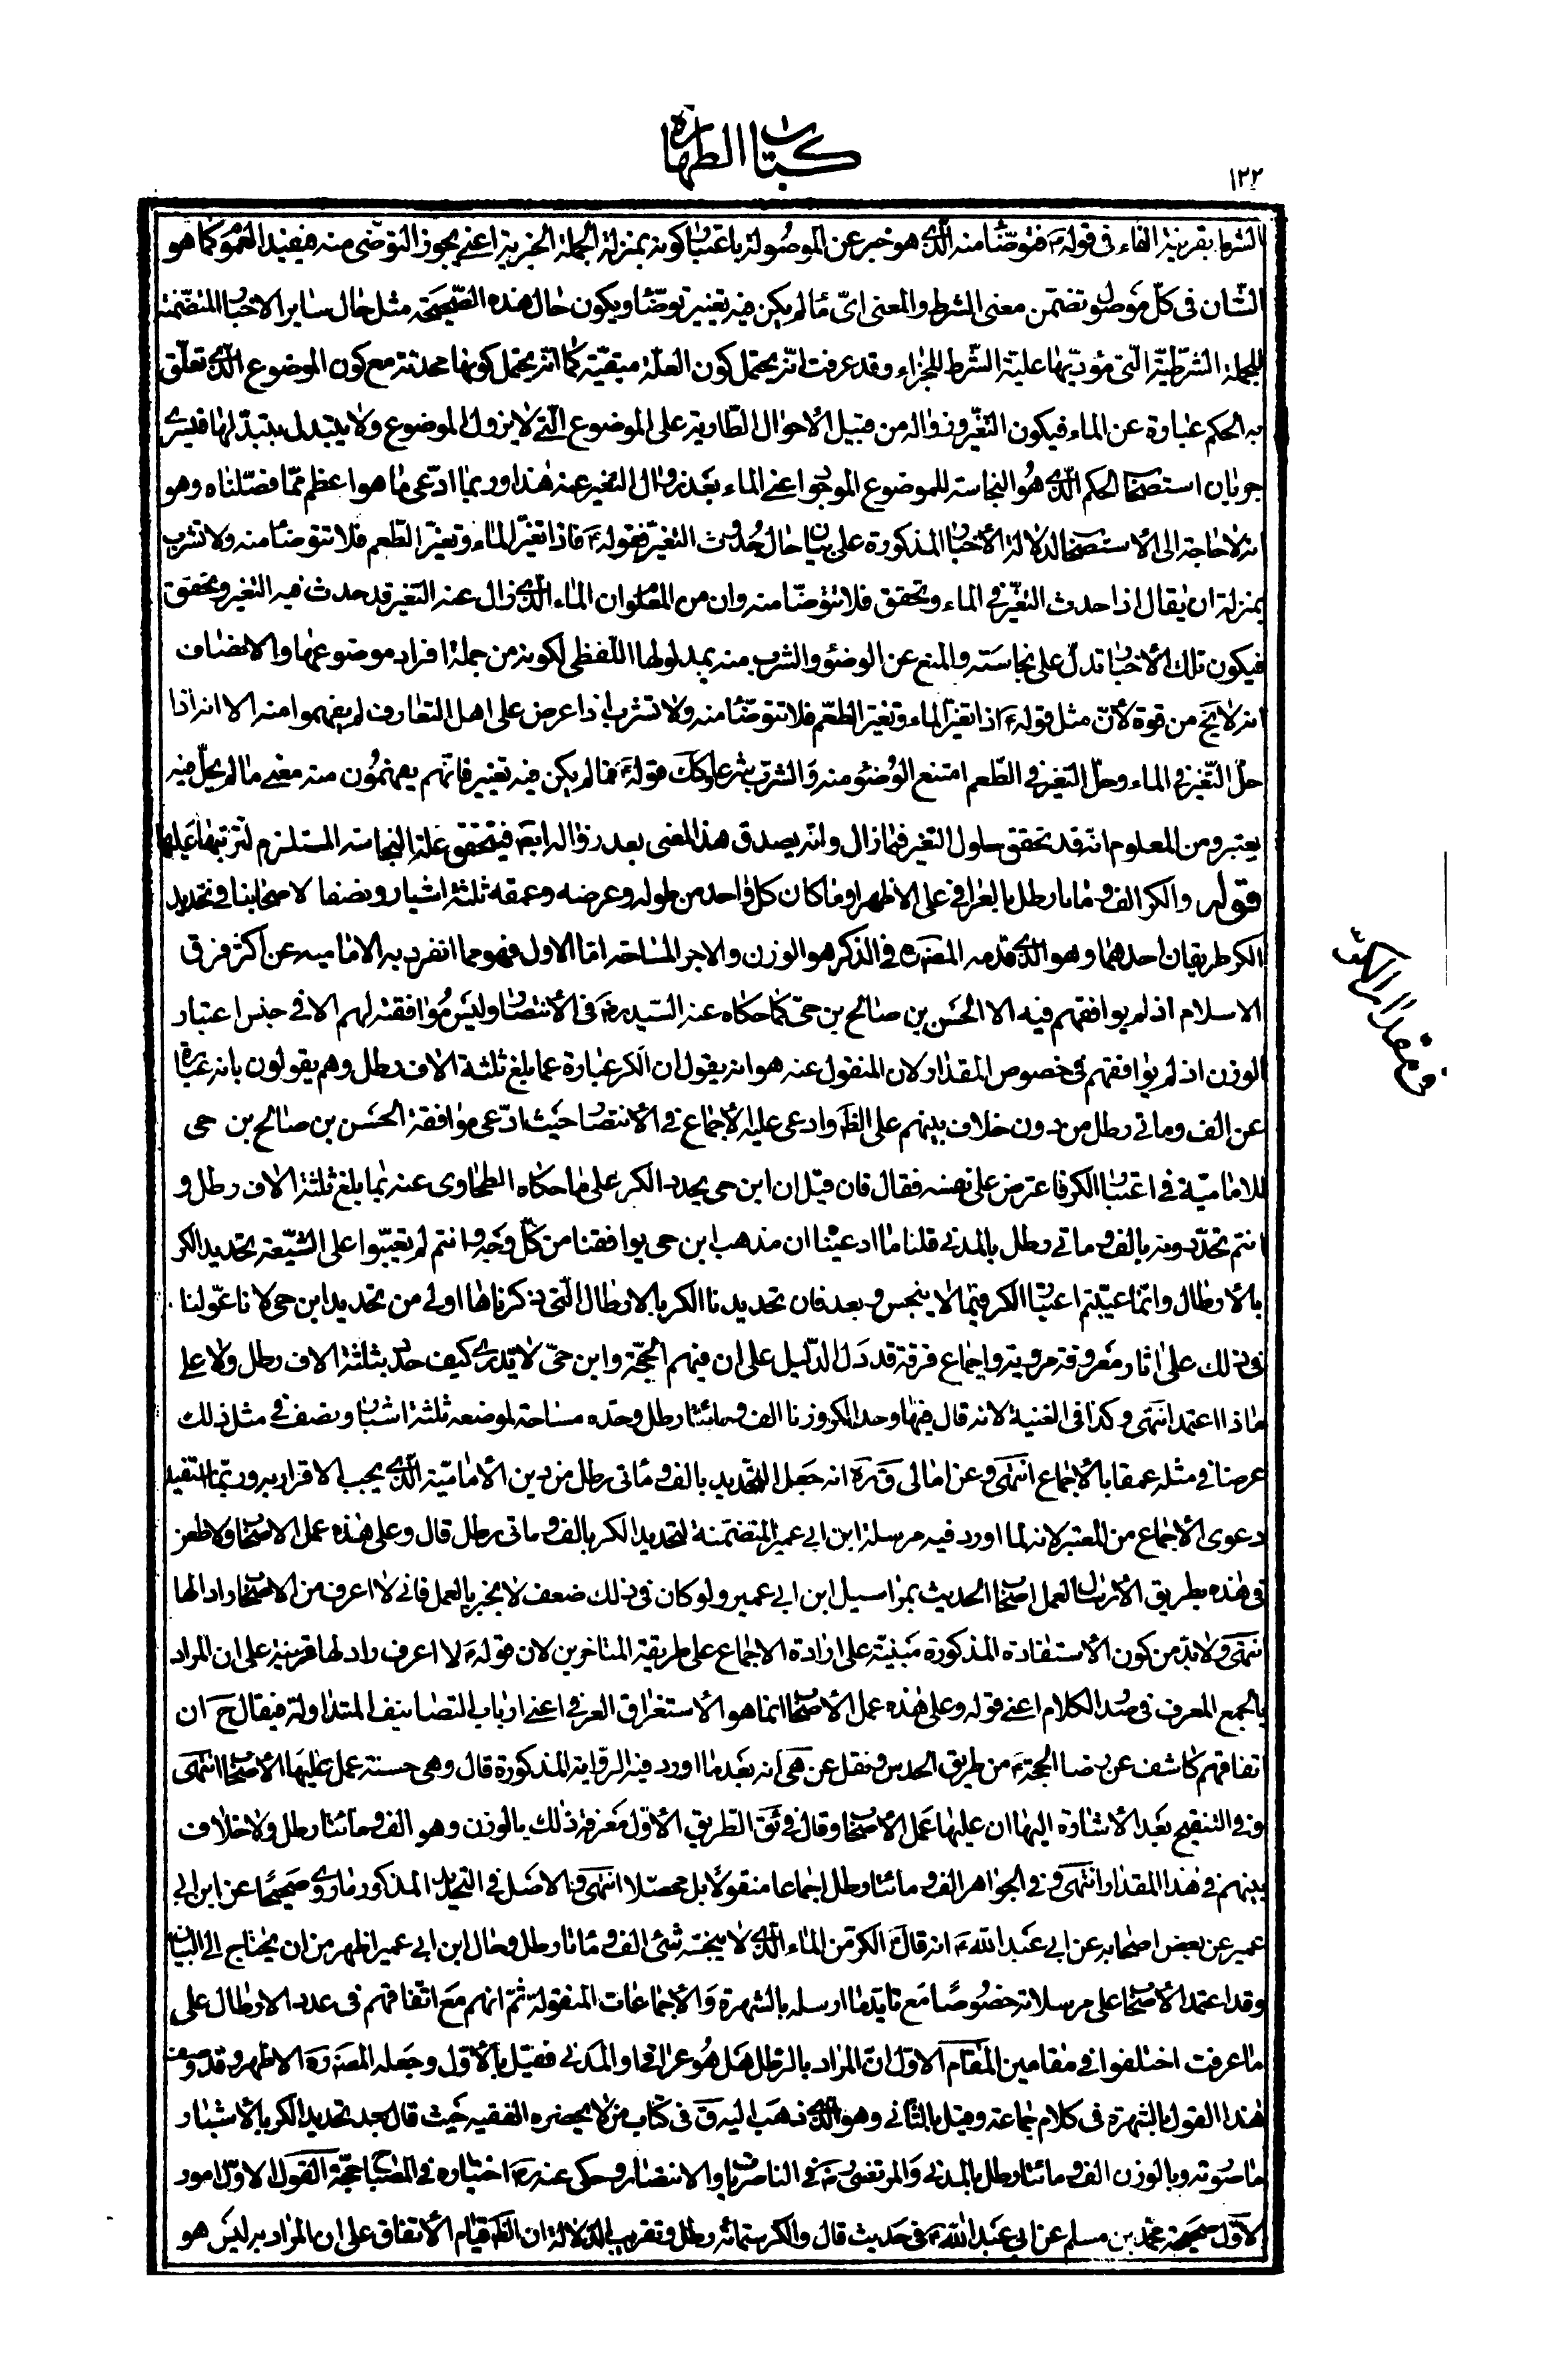 كتاب الطهارة
١٢٢
الشرط بقرينة الفاء فى قوله ع فتوضّأ منه الّذى هو خبر عن الموصولة باعتبار كونه بمنزلة الجملة الخبرية اعنى يجوز التوضّى منه فيفيد العموم كما هو
الشّان فى كلّ موصول تضمّن معنى الشرط والمعنى اىّ ماء لم يكن فيه تغيير توضّأ ويكون حال هذه الصّحيحة مثل حال ساير الاخبار المتضمّنة
للجملة الشرطيّة الّتى مؤدّيها علية الشّرط للجزاء وقد عرفت انّه يحتمل كون العلّة مبقيّة كما انّه يحتمل كونها محدثة مع كون الموضوع الّذى تعلّق
به الحكم عبارة عن الماء فيكون التغّير وزواله من قبيل الأحوال الطّارية على الموضوع الّتى لا يزول الموضوع ولا يتبدل بتبدّلها فيسرى
جريان استصحاب الحكم الّذى هُو النجاسة للموضوع الموجود اعنى الماء بعد زوال التغير عنه هذا وربما ادّعى ما هو اعظم ممّا فصّلناه وهو
انه لا حاجة الى الأستصحاب لدلالة الأخبار المذكورة على بيان حال حُدوث التغيّر فقوله ع فاذا تغيّر الماء وتغيّر الطّعم فلا تتوضّأ منه ولا تشرب
بمنزلة ان يقال اذا حدث التغّير فى الماء وتحقق فلا تتوضّأ منه وان من المعلوم ان الماء الّذى زال عنه التغير قد حدث فيه التغير وتحقق
فيكون تلك الأخبار تدلّ على نجاسته والمنع عن الوضوء والشرب منه بمدلولها اللّفظى لكونه من جملة افراد موضوعها والانصاف
انه لا يخ من قوة لأنّ مثل قوله ع اذا تغيّر الماء وتغيّر الطعّم فلا تتوضّأ منه ولا تشرب اذا عرض على اهل التعارف لم يفهموا منه الا انه اذا
حلّ التّغير فى الماء وحلّ التغير فى الطّعم امتنع الوُضوء منه والشرب شرعا وكك قوله ع فما لم يكن فيه تغيير فانّهم يفهمون منه معنى ما لم يحلّ فيه
يعتبر ومن المعلوم انّه قد تحقق حلول التغير فيما زال وانّه يصدق هذا المعنى بعد زواله ايض فيتحقق علة النجاسة المستلزم لترتبها عليها
قوله والكر الف ومائتا رطل بالعراقى على الاظهر او ما كان كل واحد من طوله وعرضه وعمقه ثلثة اشبار ونصفا لاصحابنا فى تحديد
الكر طريقان احدهما وهو الّذى قدمه المصنف ره فى الذكر هو الوزن والاخر المساحة امّا الاول فهو مما انفرد به الامامية عن اكثر فرق
الاسلام اذ لم يوافقهم فيه الا الحسَن بن صالح بن حىّ كما حكاه عنه السّيد ره فى الأنتصار وليسَ مُوافقته لهم الا فى جنس اعتبار
الوزن اذ لم يوافقهم فى خصوص المقدار لان المنقول عنه هو انه يقول ان الكر عبارة عما بلغ ثلثة الاف رطل وهم يقولون بانه عبارة
عن الف ومأتى رطل من دون خلاف بينهم على الظ وادعى عليه الأجماع فى الأنتصار حيث ادّعى موافقة الحسَن بن صالح بن حى
للاماميّة فى اعتبار الكر فاعترض على نفسه فقال فان قيل ان ابن حى يحدد الكر على ما حكاه الطحاوى عنه بما بلغ ثلثة الاف رطل و
انتم تحدّدونه بالف ومأتى رطل بالمدنى قلنا ما ادعينا ان مذهب ابن حى يوافقنا من كلّ وجه وانتم لم تعيّبوا على الشيّعة تحديد الكر
بالأرطال وانّما عيّبتم اعتبار الكر فيما لا ينجس وبعد فان تحديدنا الكر بالارطال الّتى ذكرناها اولى من تحديد ابن حى لانا عوّلنا
فى ذلك على اثار معروفة مروية واجماع فرقة قد دَل الدّليل على ان فيهم الحجّة وابن حىّ لا يدرى كيف حدّد بثلثة الاف رطل ولا على
ماذا اعتمد انتهى وكذا فى الغنية لانه قال فيها وحد الكر وزنا الف ومائتا رطل وحده مساحة لموضعه ثلثة اشبار ونصف فى مثل ذلك
عرضا فى مثله عمقا بالأجماع انتهى وعن امالى ق ره انه جعل التحديد بالف ومأتى رطل من دين الأماميّة الّذى يجب الاقرار به وربّما استفيد
دعوى الأجماع من المعتبر لانه لما اورد فيه مرسلة ابن ابى عمير المتضمّنة لتحديد الكر بالف ومأتى رطل قال وعلى هذه عمل الاصحاب ولا طعن
فى هذه بطريق الأرسال لعمل اصحاب الحديث بمراسيل ابن ابى عمير ولو كان فى ذلك ضعف لانجبر بالعمل فانى لا اعرف من الاصحاب رادا لها
انتهى ولا بدّ من كون الأستفادة المذكورة مَبنيّة على ارادة الاجماع على طريقة المتاخرين لان قوله ره لا اعرف رادا لها قرينة على ان المراد
بالجمع المعرف فى صدر الكلام اعنى قوله وعلى هذه عمل الأصحاب انما هو الأستغراق العرفى اعنى ارباب التصانيف المتداولة فيقال ح ان
اتفاقهم كاشف عن رضا الحجة ع من طريق الحدس ونقل عن هى انه بعَد ما اورد فيه الرّواية المذكورة قال وهى حسنة عمل عليها الأصحاب انتهى
وفى التنقيح بعَد الأشارة اليها ان عليها عَمل الأصحاب وقال فى ثق الطّريق الأوّل معرفة ذلك بالوزن وهو الف ومائتا رطل ولا خلاف
بينهم فى هذا المقدار انتهى وفى الجواهر الف ومائتا رطل اجماعا منقولا بل محصّلا انتهى والاصَل فى التحديد المذكور ما روى صَحيحًا عن ابن ابى
عمير عن بعض اصحابه عن ابى عَبد الله ع انه قال الكر من الماء الّذى لا ينجسه شئ الف ومائتا رطل وحال ابن ابى عمير اظهر من ان يحتاج الى البيان
وقد اعتمد الأصحاب على مرسلاته خصُوصًا مَع تايّد ما ارسله بالشهرة وَالأجماعات المنقولة ثمّ انهم مَع اتفاقهم فى عدد الارطال على
ما عرفت اختلفوا فى مقامين المقام الاوّل انّ المراد بالرّطل هَل هُو عراقى او المدنى فقيل بالأوّل وجَعله المصنف ره الاظهر وقد وصف
هذا القول بالشهرة فى كلام جماعة وقيل بالثّانى وهو الّذى ذهب اليه ق فى كتاب من لا يحضره الفقيه حيث قال بعد تحديد الكر بالأشبار
ما صُورته وبالوزن الف ومائتا رطل بالمدنى والمرتضى ره فى الناصريات والانتصار وحكى عنه ره اختياره فى المصباح حجّة القول الاوّل امور
الاوّل صحيحة محمّد بن مسلم عن ابى عَبد الله ع فى حَديث قال والكر ستمائة رطل وتقريب الدّلالة ان الظ قيام الأتفاق على ان المراد به ليسَ هو
فى مقدار الكر